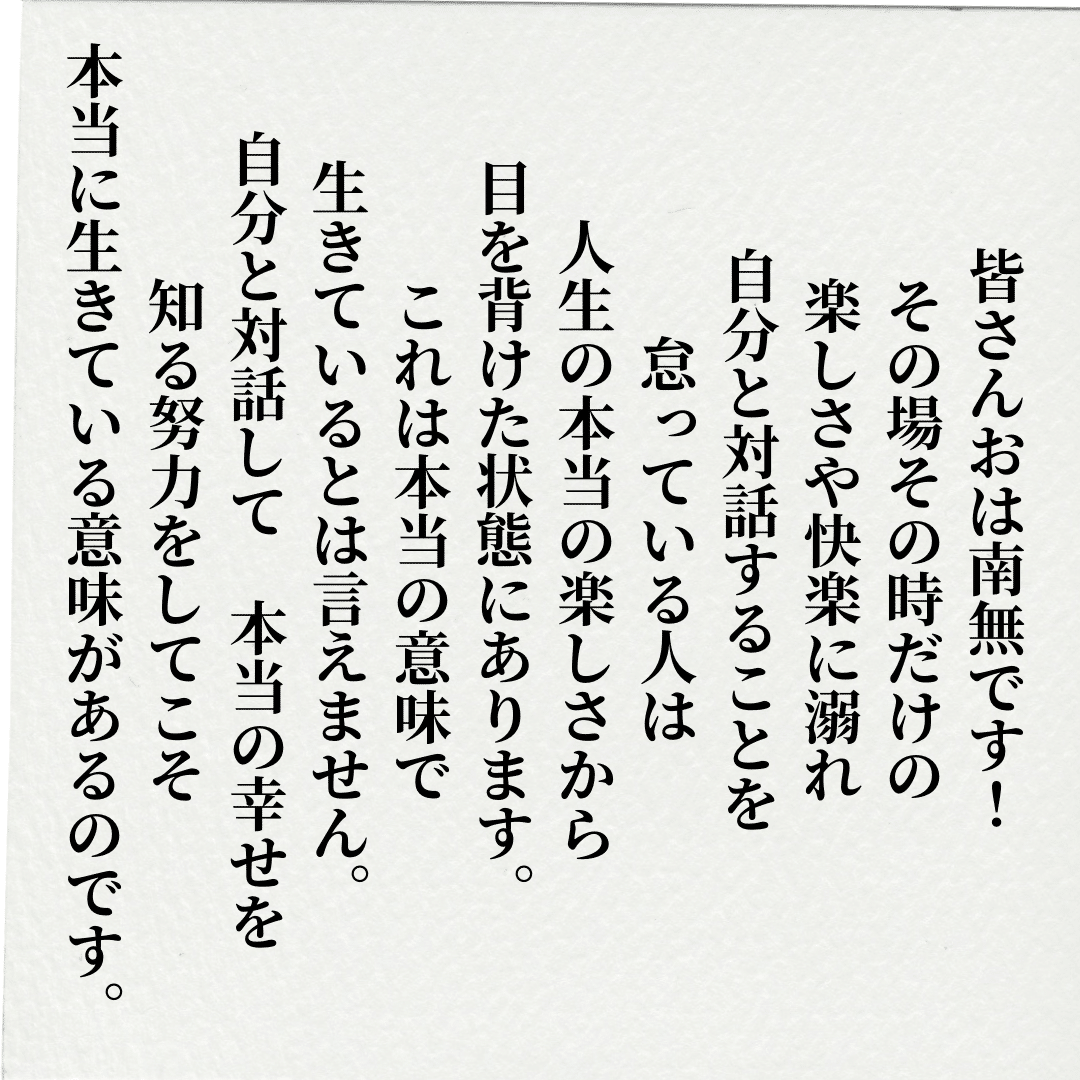 皆さんおは南無です！
その場その時だけの
楽しさや快楽に溺れ
自分と対話することを
怠っている人は
人生の本当の楽しさから
目を背けた状態にあります。
これは本当の意味で
生きているとは言えません。
自分と対話して　本当の幸せを
知る努力をしてこそ
本当に生きている意味があるのです。